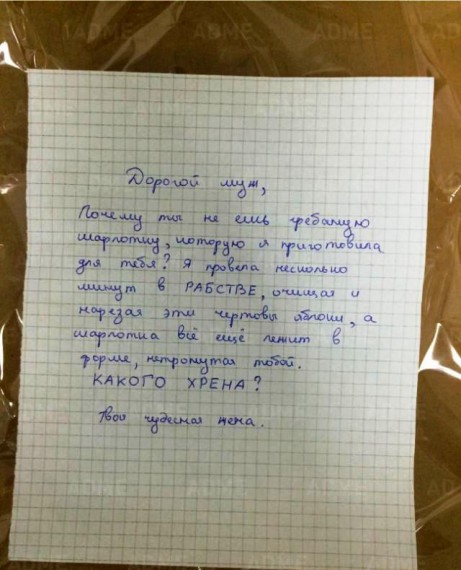 Дорогой муж,
Почему ты не ешь гребаную
шарлотку, которую я приготовила
для тебя? Я провела несколько
минут в РАБСТВЕ, очищая и
нарезая эти чертовы яблоки, а
шарлотка всё ещё лежит в
форме, нетронутая тобой.
КАКОГО ХРЕНА?
Твоя чудесная жена.
ADME